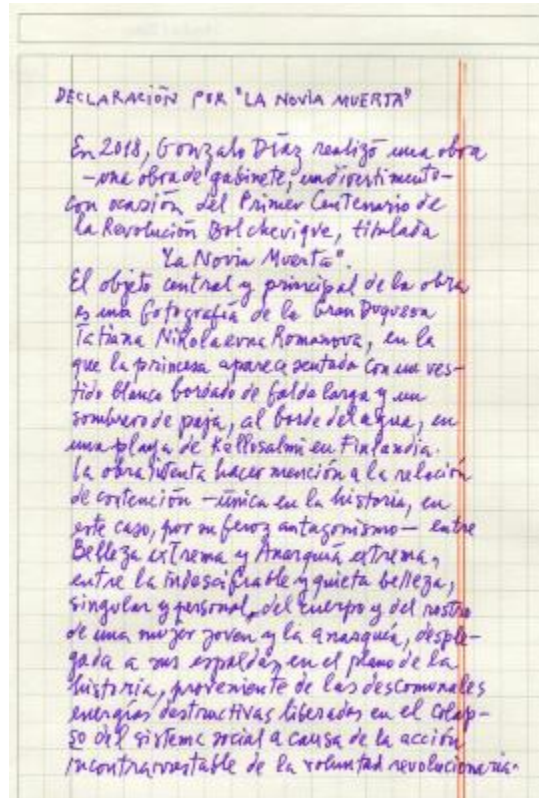 DECLARACIÓN POR "LA NOVIA MUERTA"
En 2018, Gonzalo Díaz realizó una obra
— una obra de gabinete, un divertimento —
con ocasión del Primer Centenario de
la Revolución Bolchevique, titulada
"La Novia Muerta".
El objeto central y principal de la obra
es una fotografía de la Gran Duquesa
Tatiana Nikolaevna Romanova, en la
que la princesa aparece sentada con un ves-
tido blanco bordado de falda larga y un
sombrero de paja, al borde del agua, en
una playa de Kallosalmi en Finlandia.
La obra intenta hacer mención a la relación
de contención — única en la historia, en
este caso, por su feroz antagonismo — entre
Belleza extrema y Anarquía extrema,
entre la indescifrable y quieta belleza,
singular y personal, del cuerpo y del rostro
de una mujer joven y la anarquía, desple-
gada a sus espaldas en el plano de la
historia, proveniente de las descomunales
energías destructivas liberadas en el colap-
so del sistema social a causa de la acción
incontrarrestable de la voluntad revolucionaria.